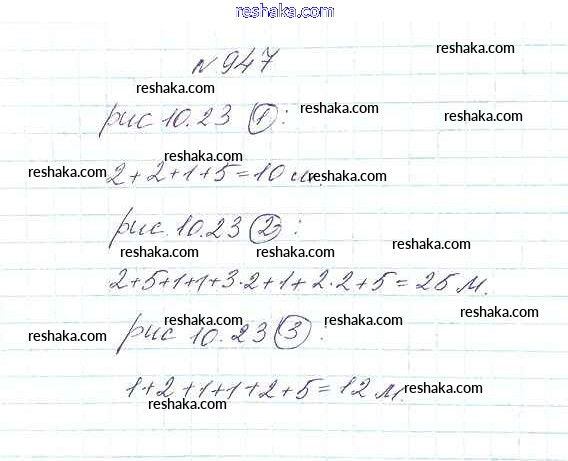 reshaka.com
№ 947
reshaka.com
reshaka.com
рис 10.23 ①:
reshaka.com
reshaka.com
reshaka.com
reshaka.com
2+2+1+5=10 м.
reshaka.com
рис. 10.23 ②:
reshaka.com
reshaka.com
reshaka.com
2+5+1+1+3·2+1+2·2+5=25 м.
reshaka.com
reshaka.com
reshaka.com
reshaka.com
рис 10.23 ③:
1+2+1+1+2+5=12 м.
reshaka.com
reshaka.com